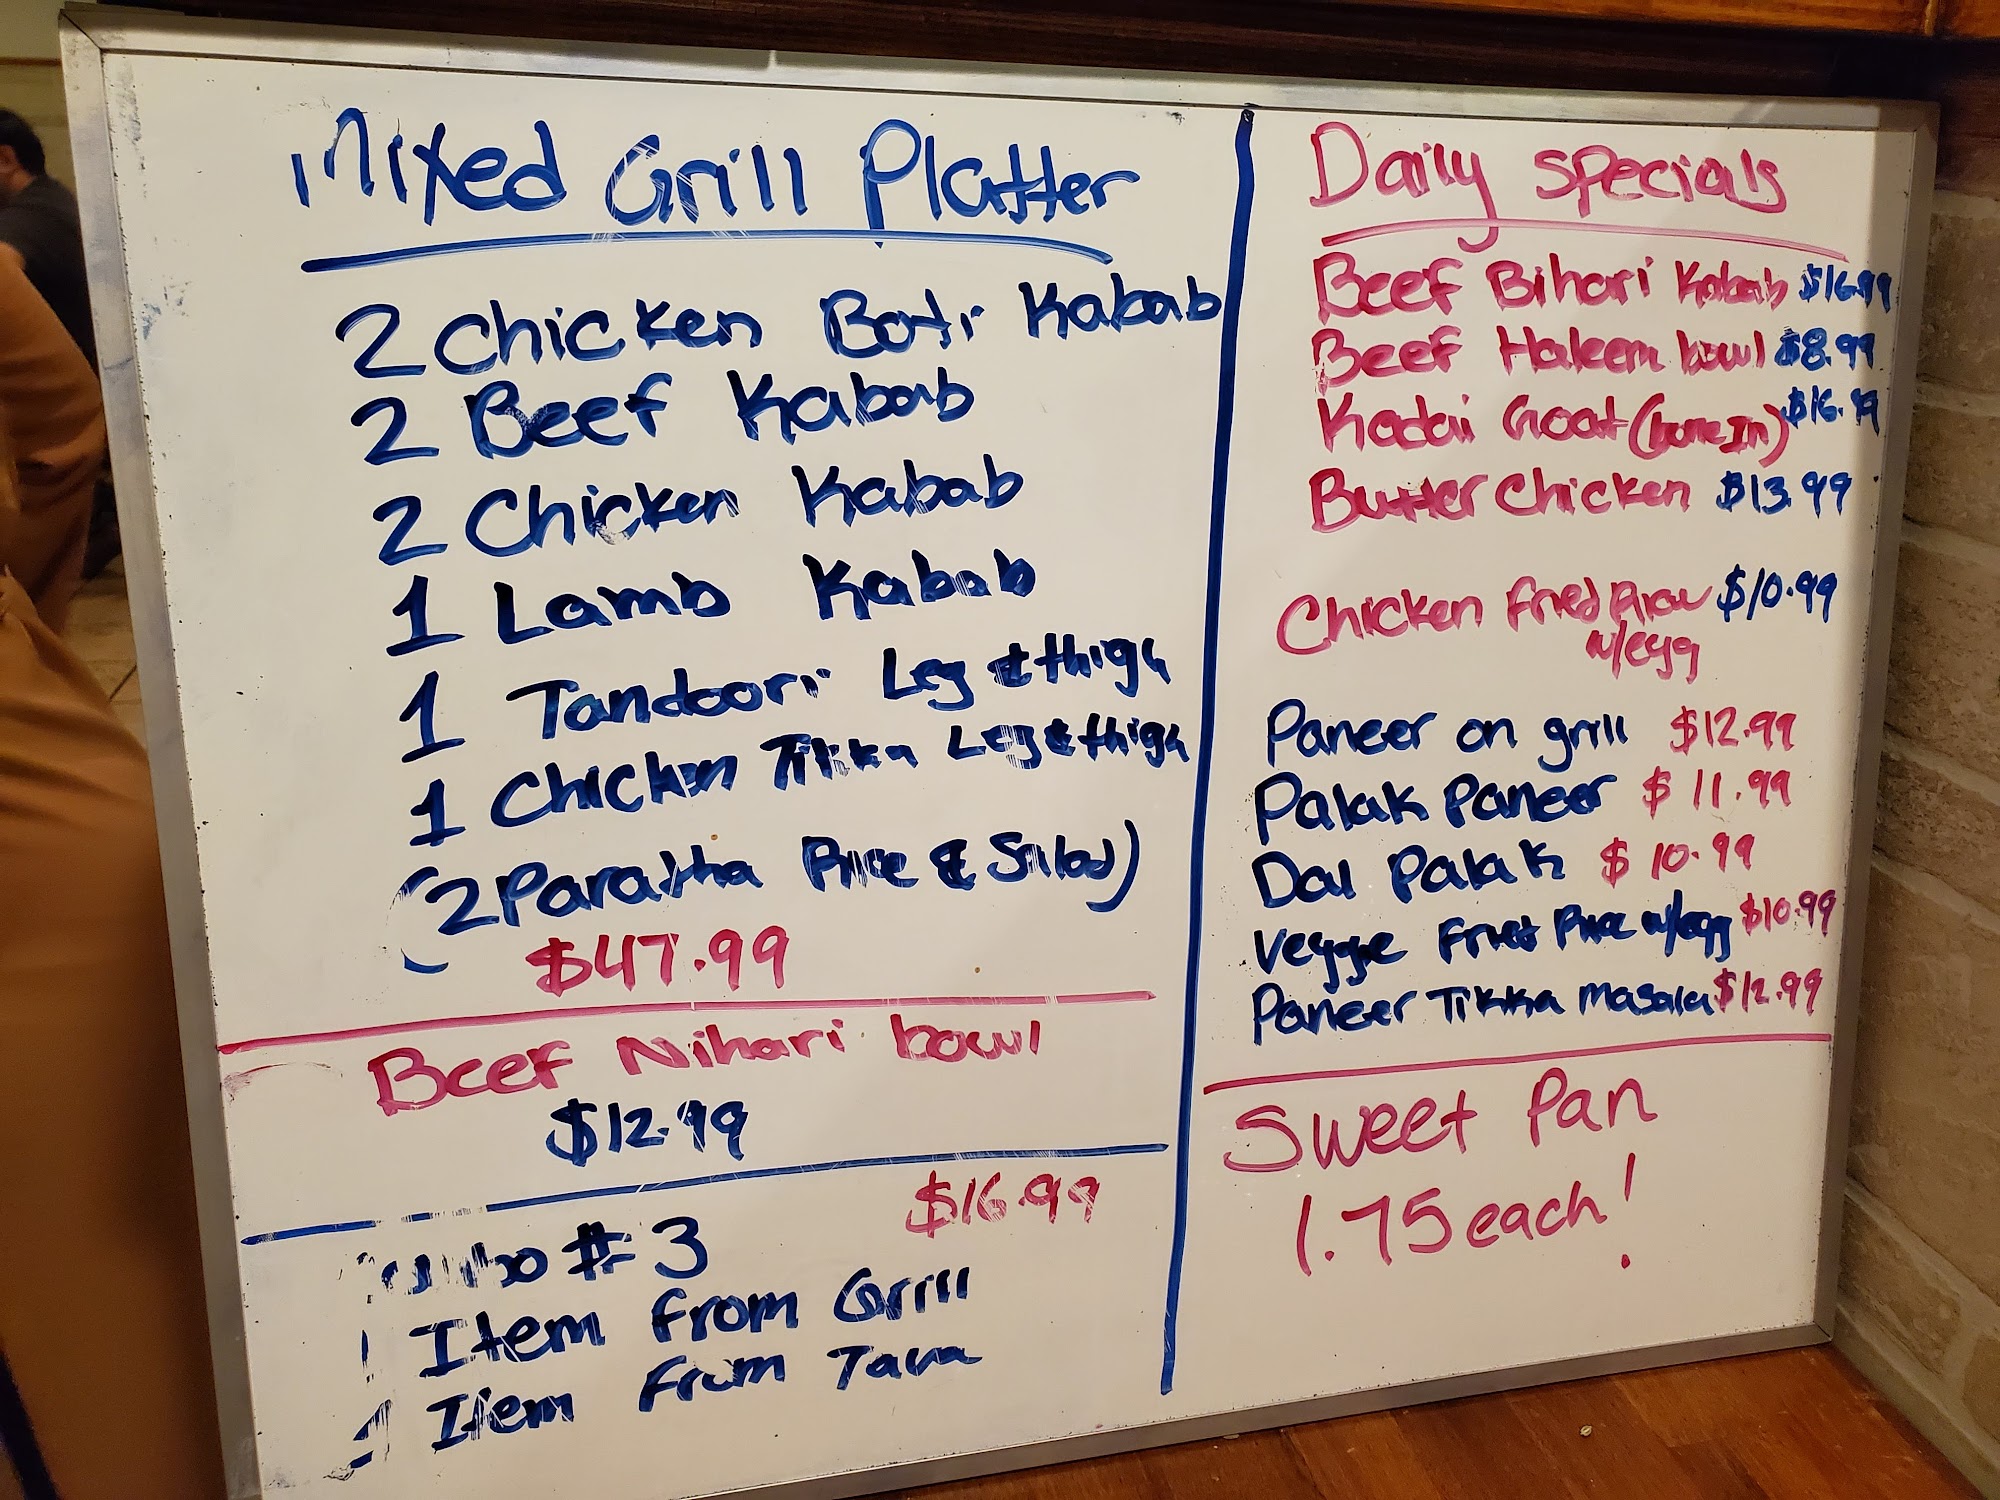 Mixed Grill Platter
2 Chicken Boti Kabab
2 Beef Kabab
2 Chicken Kabab
1 Lamb Kabab
1 Tandoori Leg & thigh
1 Chicken Tikka Leg & thigh
(2 Paratha Rice & Salad)
$47.99
Beef Nihari bowl
$12.99
$16.99
#3
1 Item From Grill
1 Item From Tava
Daily Specials
Beef Bihari Kabab $16.99
Beef Haleem bowl $8.99
Kadai Goat (bone In) $16.99
Butter Chicken $13.99
Chicken Fried Rice $10.99
w/egg
Paneer on grill $12.99
Palak Paneer $11.99
Dal Palak $10.99
Veggie Fried Rice w/egg $10.99
Paneer Tikka masala $12.99
Sweet Pan
1.75 each!